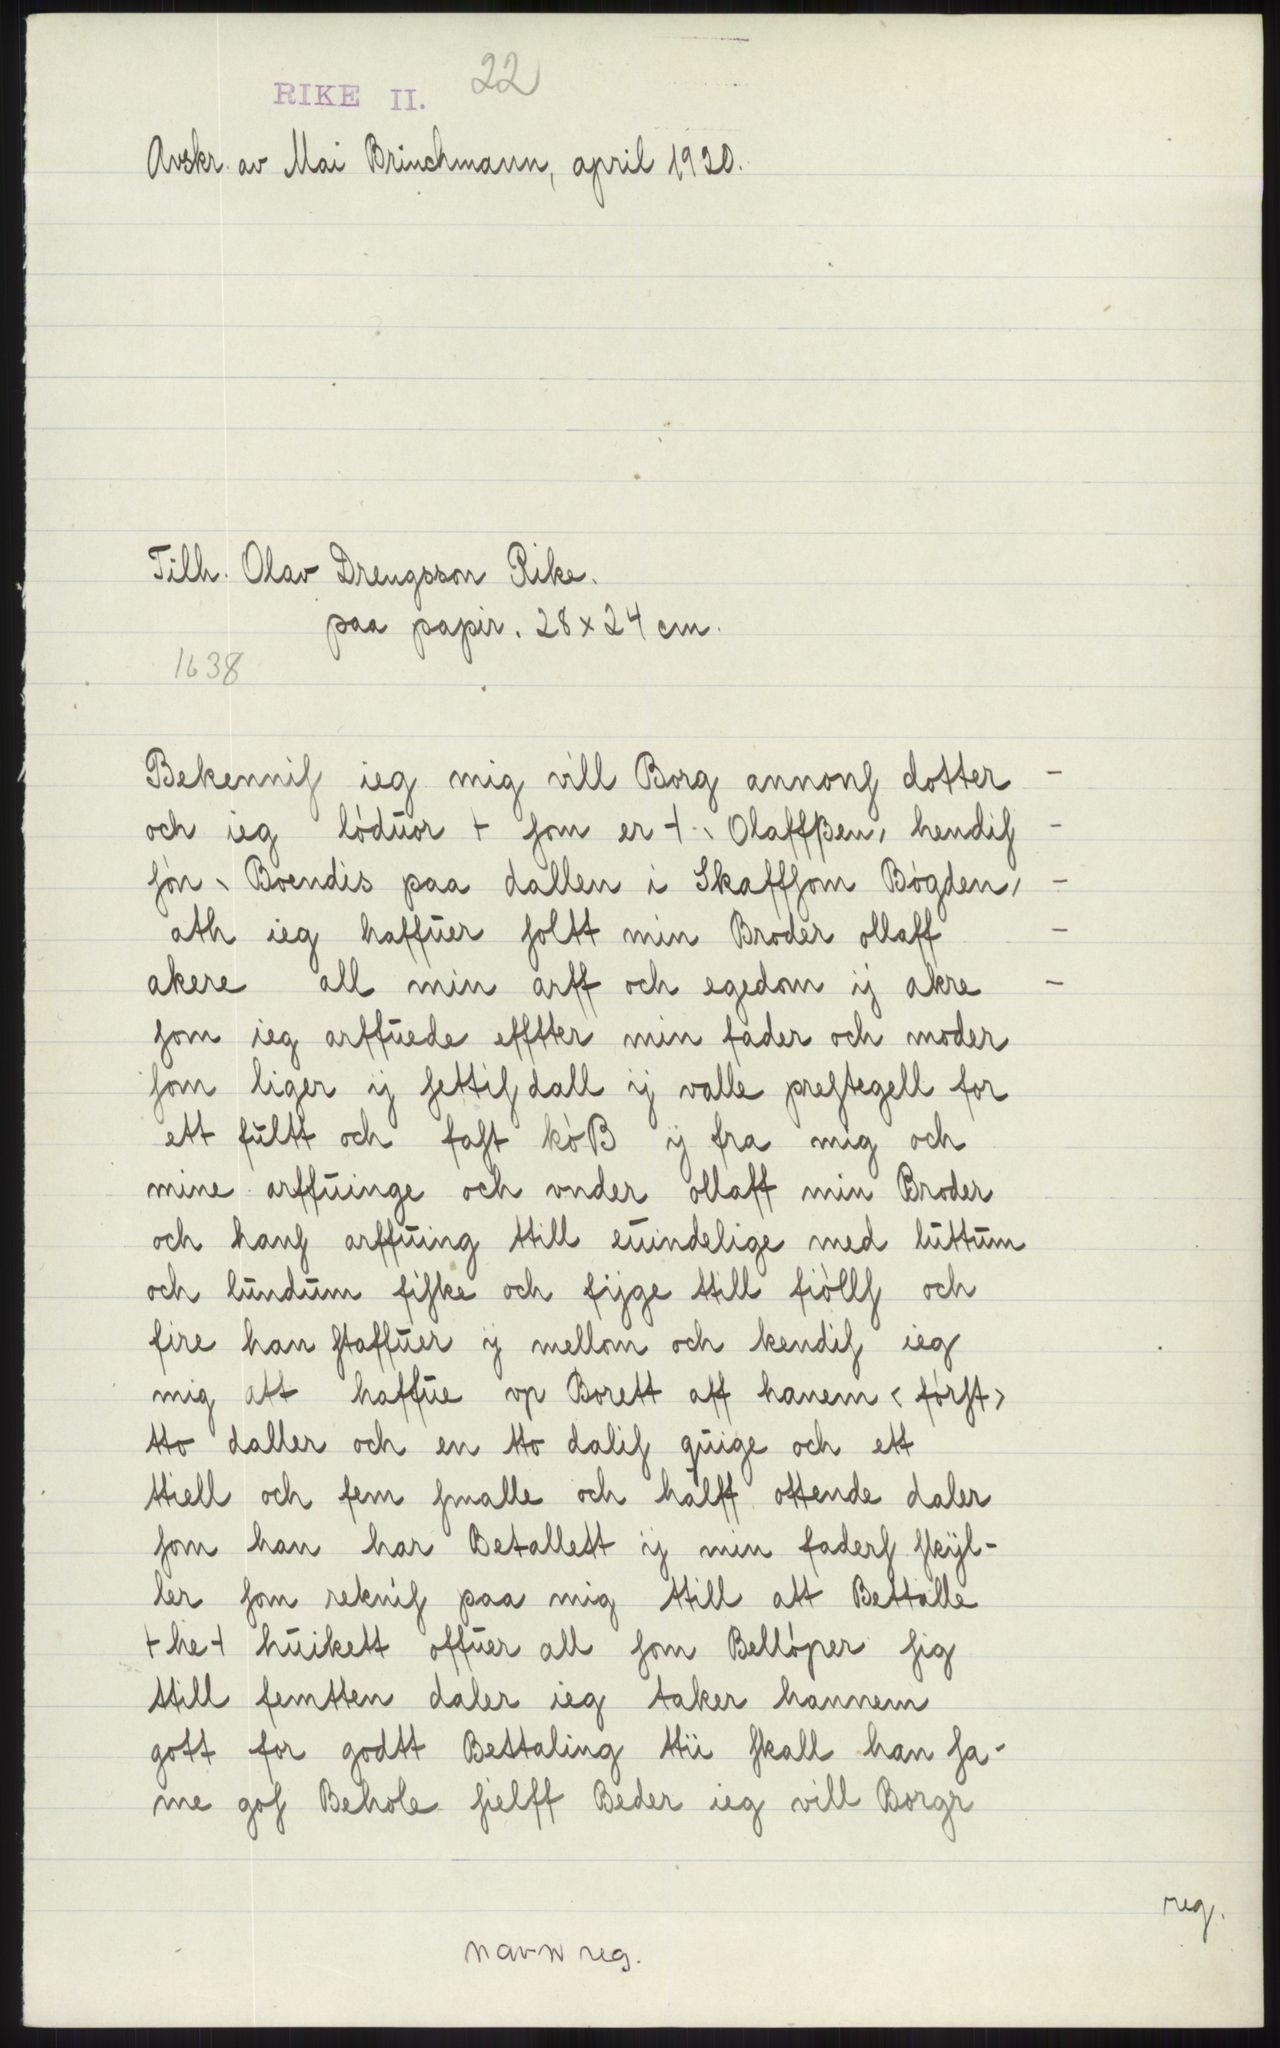 RIKE II. 22
Avskr. av Mai Brinchmann, april 1920.
Tilh. Olav Drengsson Rike.
paa papir. 28 x 24 cm.
1638
Bekenniſ ieg mig vill Borg annonſ dotter –
och ieg lóduor + ſom er + Olaffßen, hendiſ –
ſón Boendis paa dallen i Skaffſom Bógden, –
ath ieg haffuer ſoltt min Broder ollaff –
akere all min arff och egedom ij akre –
ſom ieg arffuede efftter min fader och moder
ſom liger ij ſettiſdall ij valle preſtegell for
ett fultt och faſt kóB ij fra mig och
mine arffuinge och vnder ollaff min Broder
och hanſ arffuing till euindelige med luttum
och lundum fiſke och fijge till fióllſ och
fire han ſtaffuer ij mellom och kendiſ ieg
mig att haffue vp Borett aff hanem < fórſt >
tto daller och en tto daliſ quige och ett
ttiell och fem ſmalle och halff ottende daler
ſom han har Betallett ij min faderſ ſkijl-
ler ſom rekniſ paa mig till att Bettalle
+ he + huikett offuer all ſom Bellóper ſig
till femtten daler ieg taker hannem
gott for godtt Bettaling ttii ſkall han ſa-
me goſ Behole ſielff Beder ieg vill Borgr
reg.
navn reg.